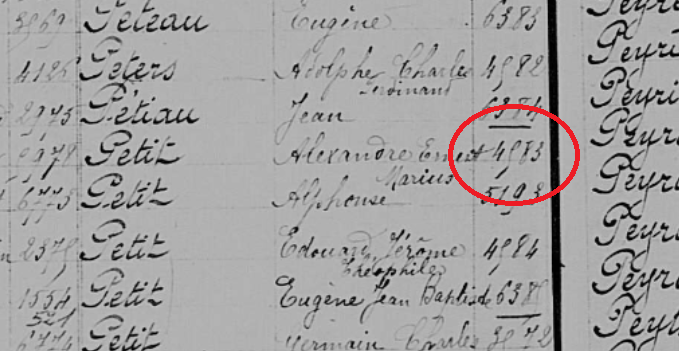 3969 Péteau Eugène 6383
4126 Peters Adolphe Charles 4982
Ferdinand
2975 Pétiau Jean 6384
Petit Alexandre Ernest 4983
Marius
6775 Petit Alphonse 5193
2375 Petit Edouard Jérôme 4984
Théophile
1554 Petit Eugène Jean Baptiste
521
6774 Petit Germain Charles
Peyr
Peyri
Peyri
Peyr
Peyr
Peyr
Peyr
Peyr